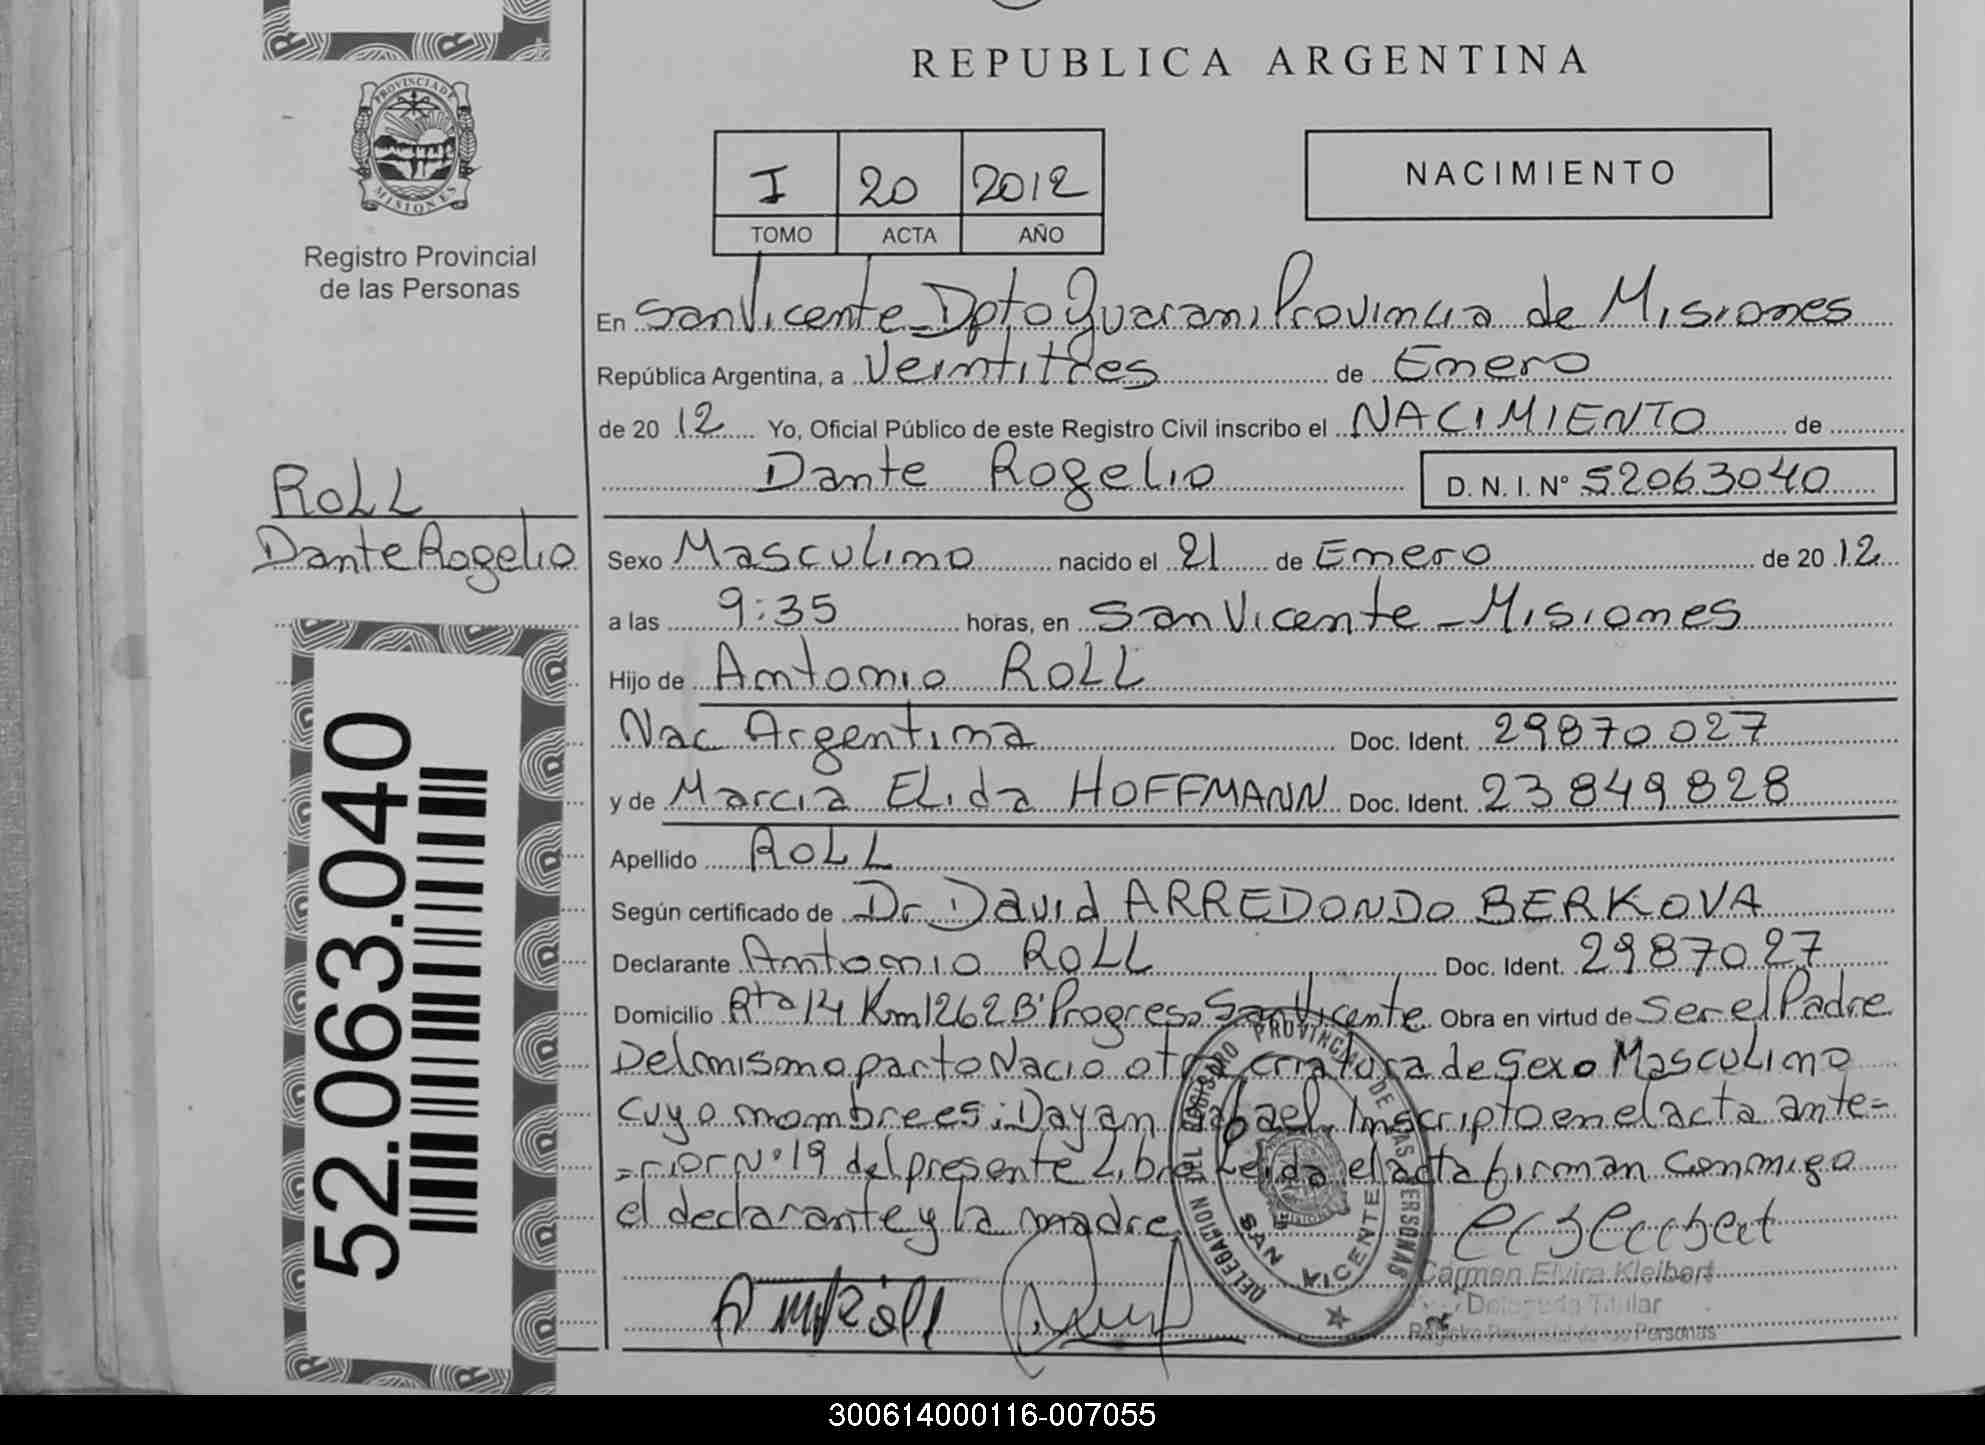 REPUBLICA ARGENTINA
PROVINCIA DE MISIONES
Registro Provincial
de las Personas
I 20 2012
TOMO ACTA AÑO
NACIMIENTO
En San Vicente Dpto Guarani Provincia de Misiones
República Argentina, a Veintitres de Enero
de 2012 Yo, Oficial Público de este Registro Civil inscribo el NACIMIENTO de
Dante Rogelio D. N. I. N° 52063040
ROLL
Dante Rogelio
Sexo Masculino nacido el 21 de Enero de 2012
a las 9:35 horas, en San Vicente - Misiones
Hijo de Antonio ROLL
Nac Argentina Doc. Ident. 29870027
y de Marcia Elida HOFFMANN Doc. Ident. 23849828
Apellido ROLL
Según certificado de Dr. David ARREDONDO BERKOVA
Declarante Antonio ROLL Doc. Ident. 2987027
Domicilio Rta 14 Km 1262 B° Progreso San Vicente Obra en virtud de Ser el Padre
Del mismo parto Nacio otra criatura de Sexo Masculino
cuyo nombre es: Dayan Rafael, Inscripto en el acta ante=
=rior N° 19 del presente Libro Leida el acta firman conmigo
el declarante y la madre
52.063.040
DELEGACION DEL REGISTRO PROVINCIAL DE LAS PERSONAS
SAN VICENTE
Carmen Elvira Kleibert
Delegada Titular
Registro Provincial de las Personas
300614000116-007055